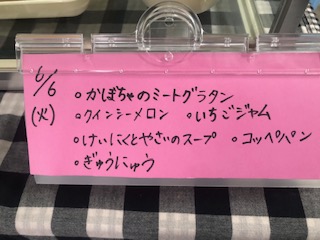 6/6
(火)
。かぼちゃのミートグラタン
。クインシーメロン 。いちごジャム
。けいにくとやさいのスープ 。コッペパン
。ぎゅうにゅう